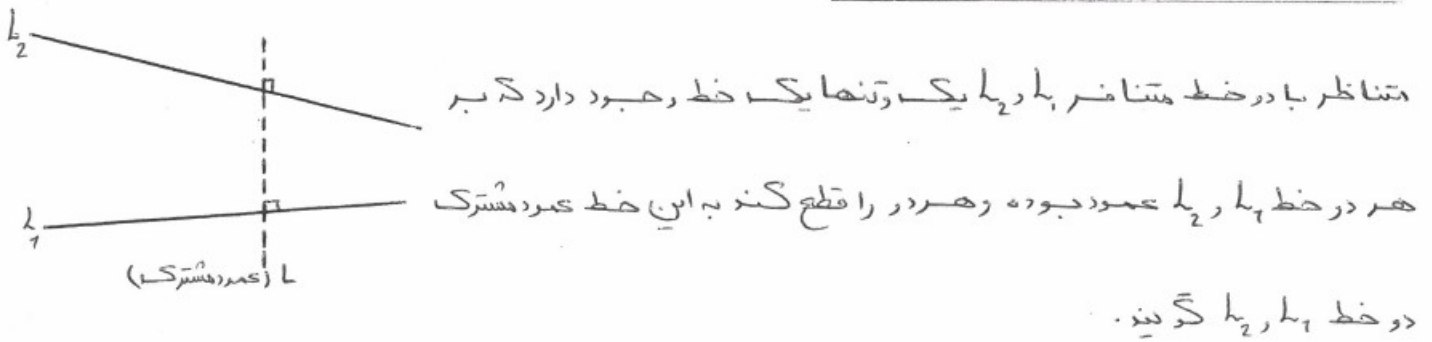 L₂
متناظر با دو خط متنافر L₁ و L₂ یک و تنها یک خط وجود دارد که بر
هر دو خط L₁ و L₂ عمود بوده و هر دو را قطع کند به این خط عمود مشترک
L₁
L (عمود مشترک)
دو خط L₁ و L₂ گویند.